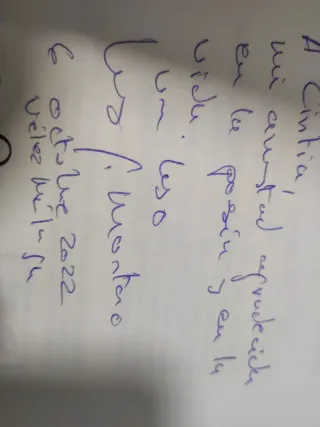 A Cintia,
mi amistad agradecida
en la poesía y en la
vida.
Un beso
Luis G. Montero
6 octubre 2022
Vélez Málaga